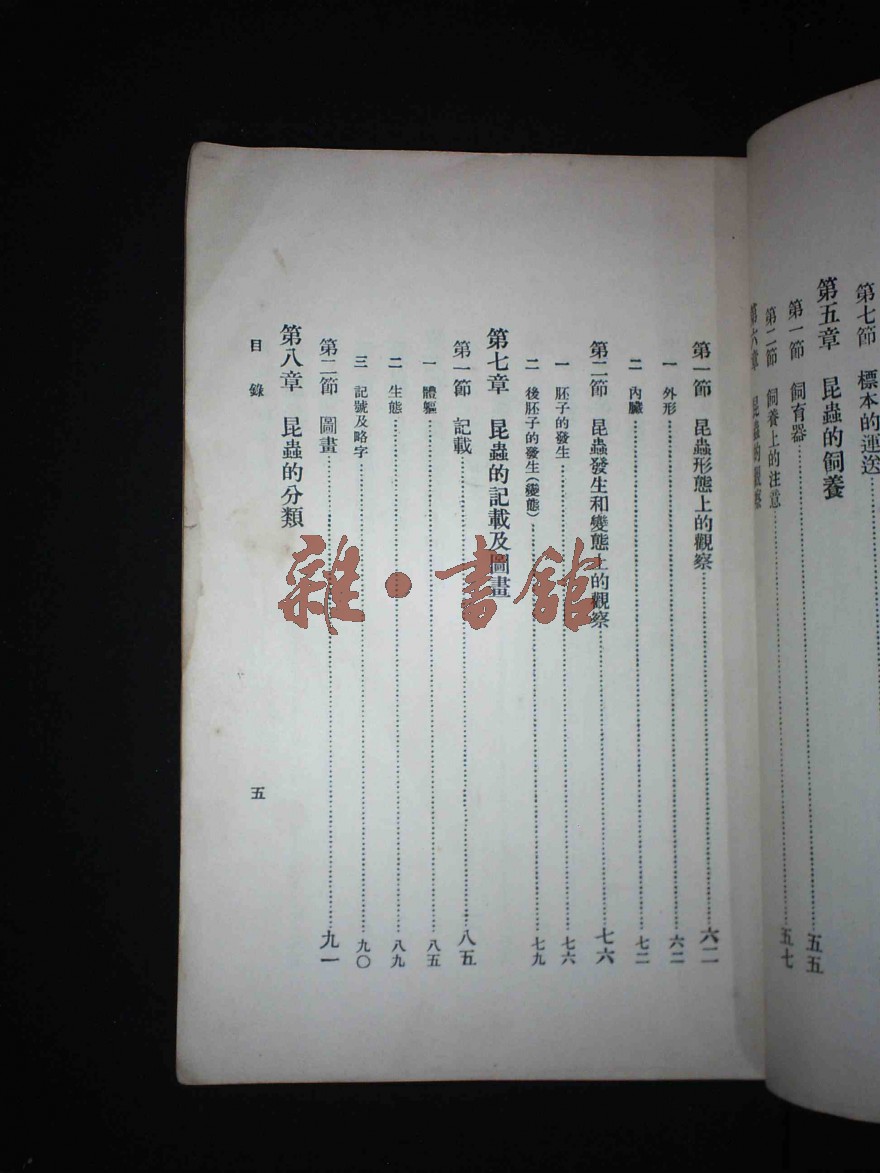 第七節 標本的運送
第五章 昆蟲的飼養
第一節 飼育器……五五
第二節 飼養上的注意……五七
第六章 昆蟲的觀察
第一節 昆蟲形態上的觀察……六二
一 外形……六二
二 內臟……七二
第二節 昆蟲發生和變態上的觀察……七六
一 胚子的發生……七六
二 後胚子的發生(變態)……七九
第七章 昆蟲的記載及圖畫
第一節 記載……八五
一 體軀……八五
二 生態……八九
三 記號及略字……九〇
第二節 圖畫……九一
第八章 昆蟲的分類
目錄
五
雜·書館